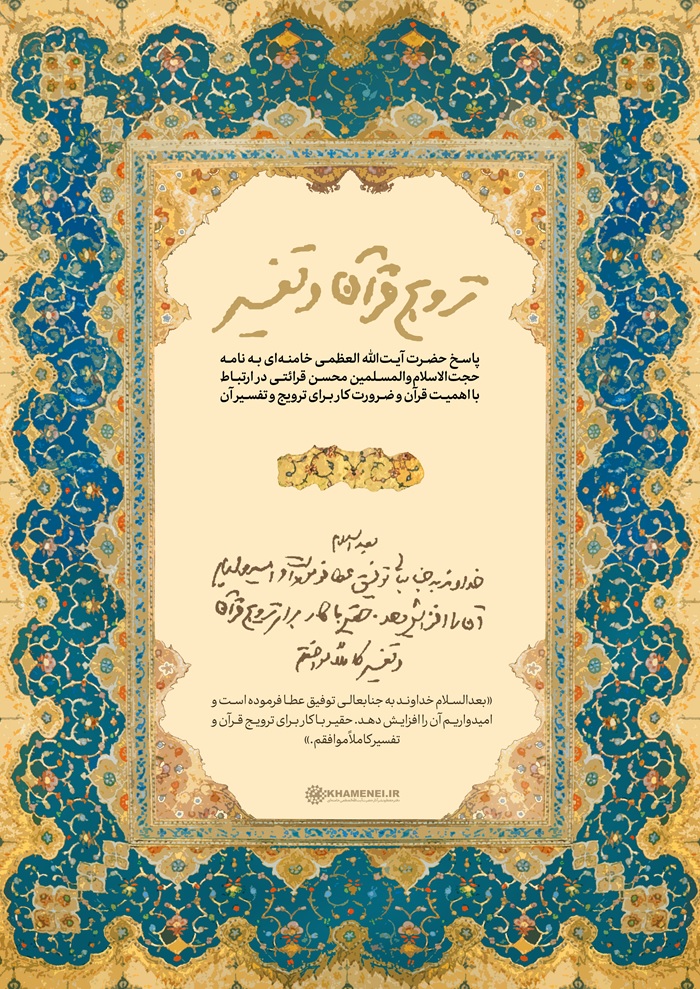 ترویج قرآن و تفسیر
پاسخ حضرت آیت‌الله العظمی خامنه‌ای به نامه
حجت‌الاسلام‌والمسلمین محسن قرائتی در ارتباط
با اهمیت قرآن و ضرورت کار برای ترویج و تفسیر آن
بعدالسلام
خداوند به جنابعالی توفیق عطا فرموده است و امیدواریم
آن را افزایش دهد. حقیر با کار برای ترویج قرآن
و تفسیر کاملاً موافقم
«بعدالسلام خداوند به جنابعالی توفیق عطا فرموده است و
امیدواریم آن را افزایش دهد. حقیر با کار برای ترویج قرآن و
تفسیر کاملاً موافقم.»
KHAMENEI.IR